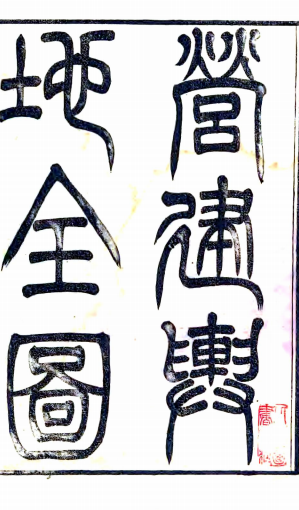 營建輿
地全圖